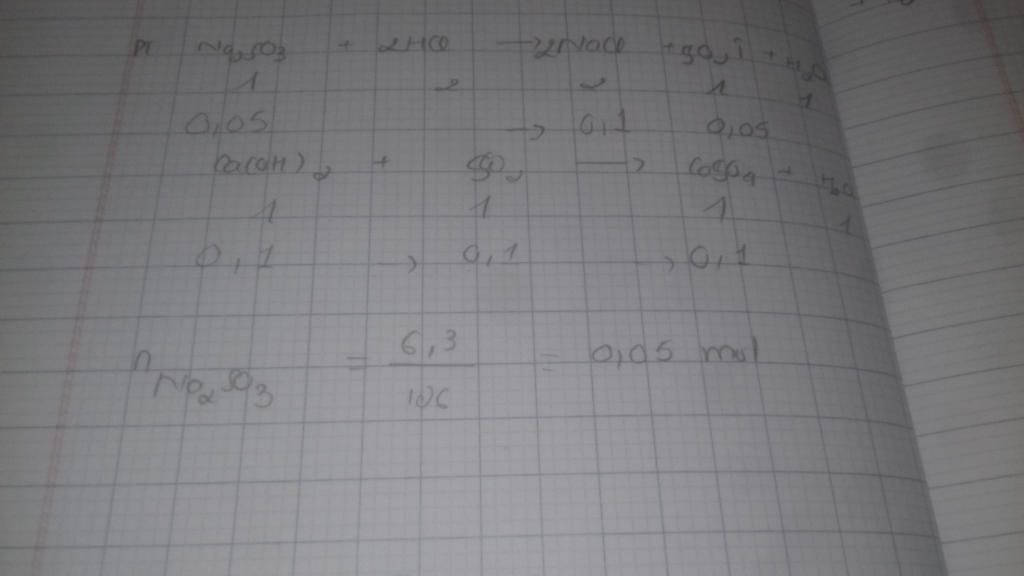 Pt Na2SO3 + 2HCl → 2NaCl + SO2↑ + H2O
1 2 2 1 1
0,05 → 0,1 0,05
Ca(OH)2 + SO2 → CaSO4 + H2O
1 1 1 1
0,1 → 0,1 → 0,1
n Na2SO3 = 6,3 / 126 = 0,05 mol